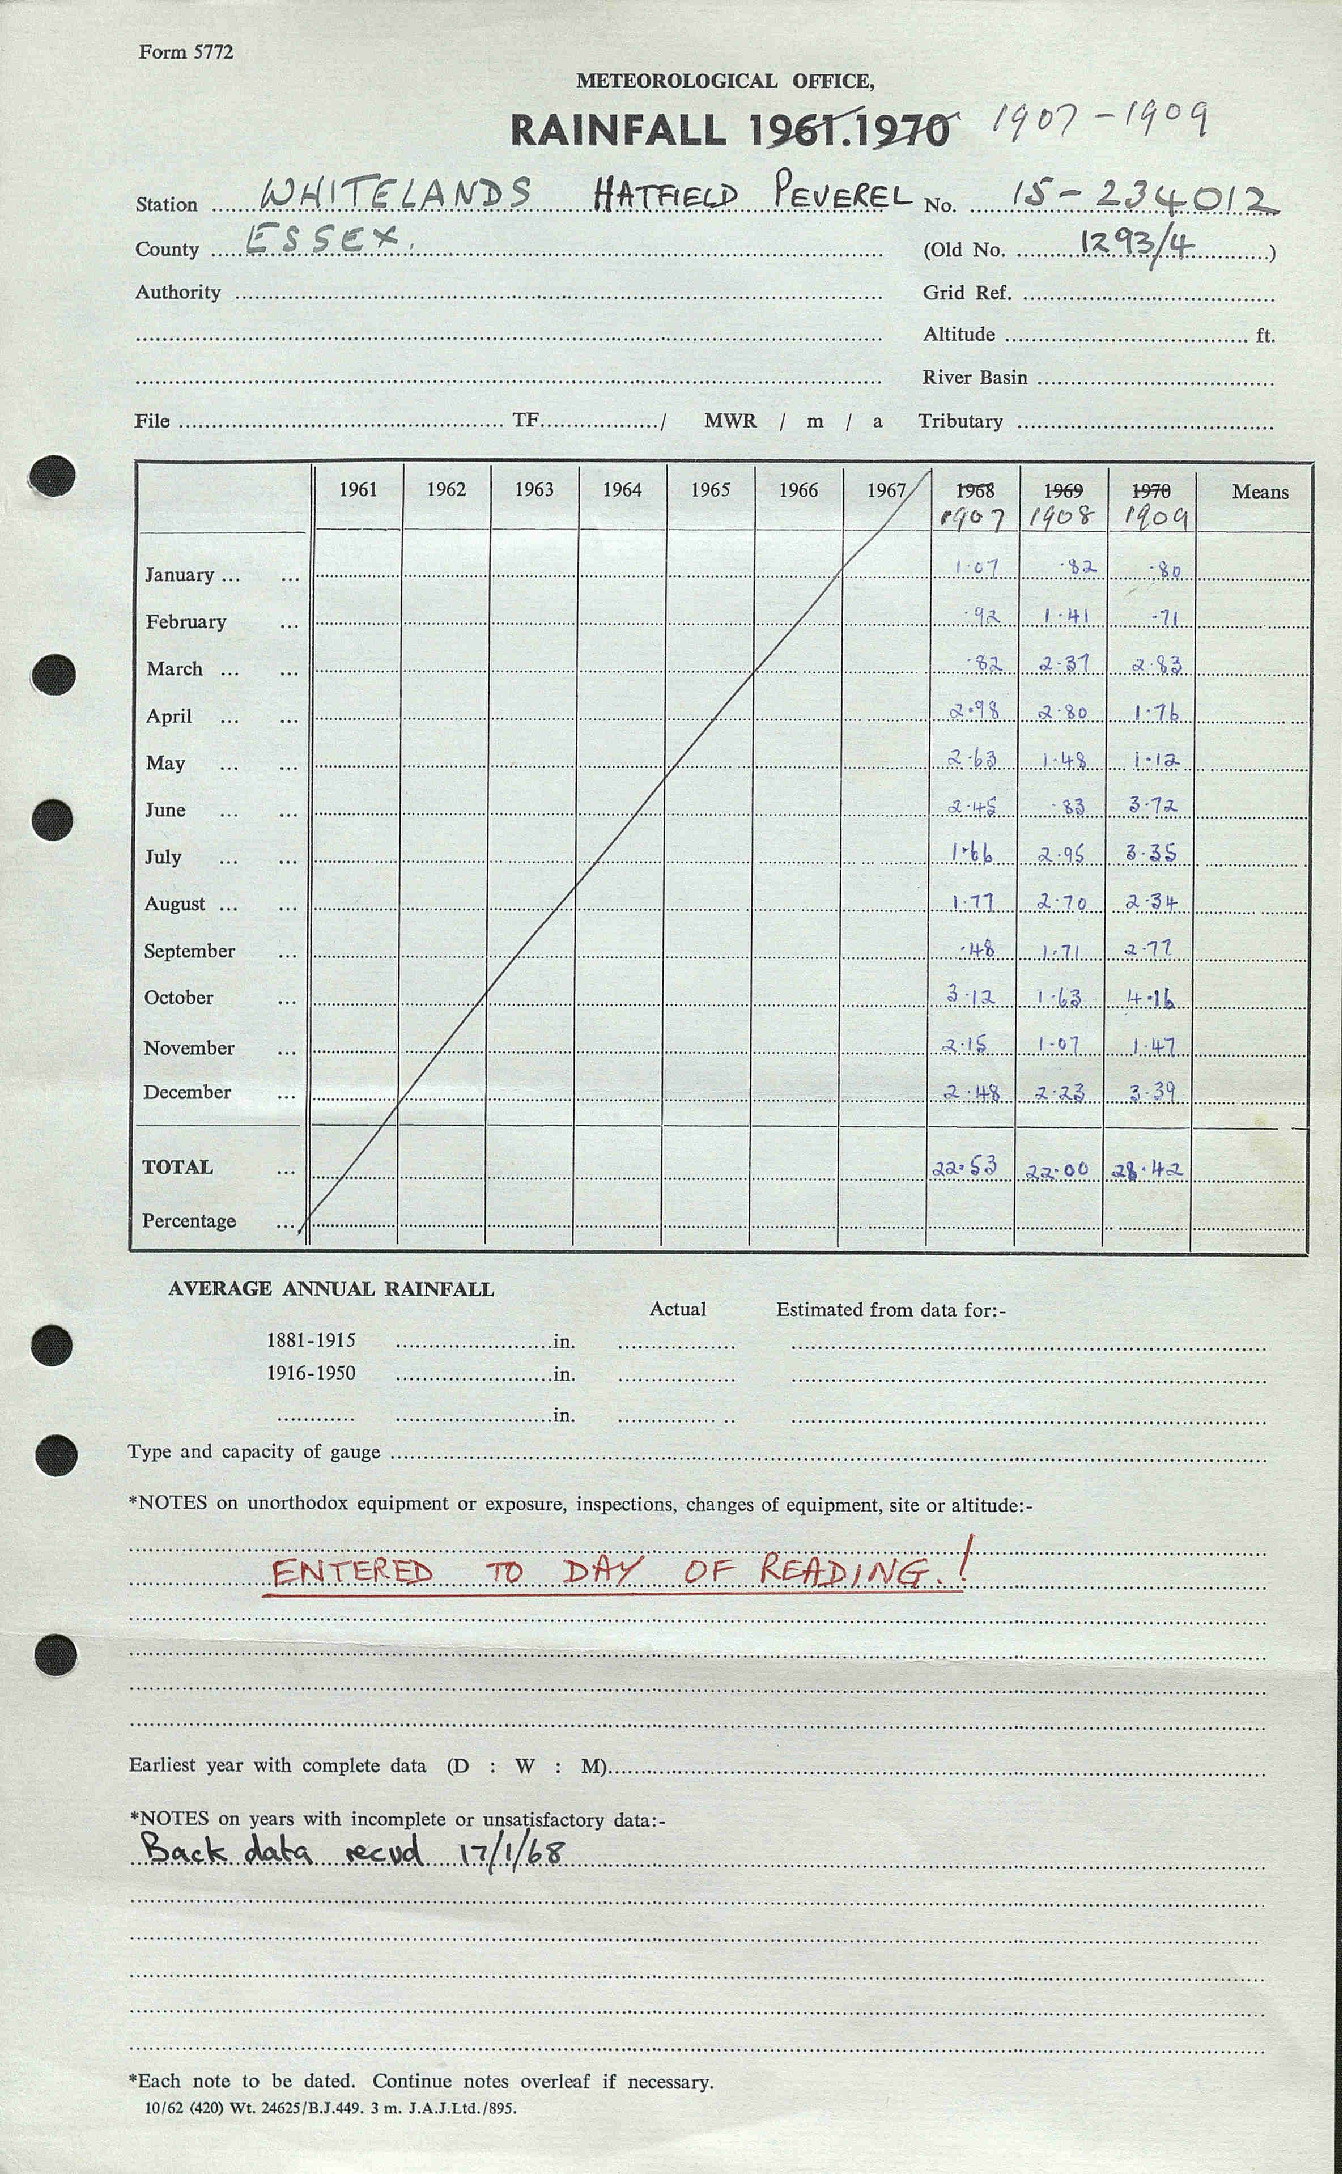 Form 5772
METEOROLOGICAL OFFICE,
RAINFALL 1961.1970 1907-1909
Station WHITELANDS HATFIELD PEVEREL No. 15-234012
County ESSEX. (Old No. 1293/4)
Authority Grid Ref.
Altitude ft.
River Basin
File TF / MWR / m / a Tributary
1961 1962 1963 1964 1965 1966 1967 1968 1969 1970 Means
1907 1908 1909
January ... ... 1.07 .82 .80
February ... .92 1.41 .71
March ... ... .82 2.37 2.83
April ... ... 2.98 2.80 1.76
May ... ... 2.63 1.48 1.12
June ... ... 2.45 .83 3.72
July ... ... 1.66 2.95 3.35
August ... ... 1.77 2.70 2.34
September ... .48 1.71 2.77
October ... 3.12 1.63 4.16
November ... 2.15 1.07 1.47
December ... 2.48 2.23 3.39
TOTAL ... 22.53 22.00 28.42
Percentage ...
AVERAGE ANNUAL RAINFALL
Actual Estimated from data for:-
1881-1915 in.
1916-1950 in.
in.
Type and capacity of gauge
*NOTES on unorthodox equipment or exposure, inspections, changes of equipment, site or altitude:-
ENTERED TO DAY OF READING.!
Earliest year with complete data (D : W : M)
*NOTES on years with incomplete or unsatisfactory data:-
Back data recvd 17/1/68
*Each note to be dated. Continue notes overleaf if necessary.
10/62 (420) Wt. 24625/B.J.449. 3 m. J.A.J.Ltd./895.